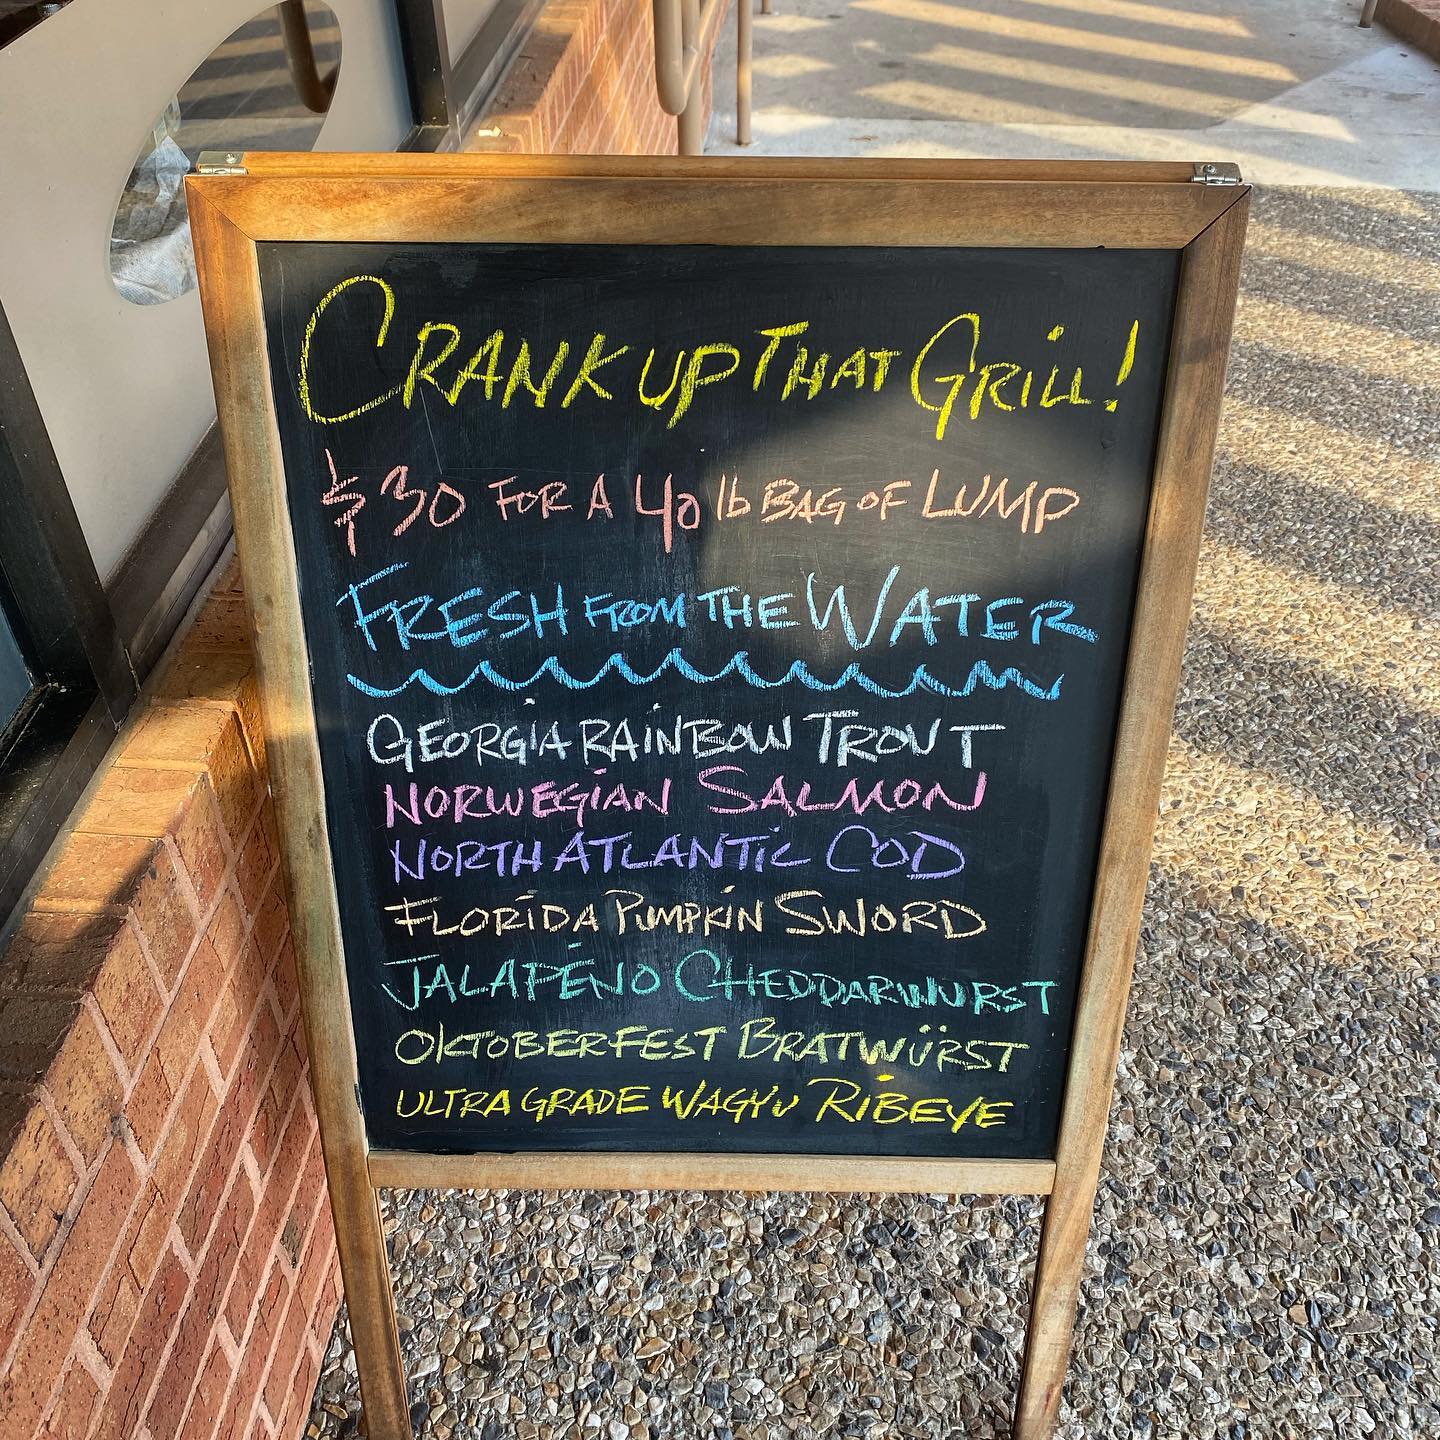 CRANK UP THAT GRILL!
$30 FOR A 40 lb BAG OF LUMP
FRESH FROM THE WATER
GEORGIA RAINBOW TROUT
NORWEGIAN SALMON
NORTH ATLANTIC COD
FLORIDA PUMPKIN SWORD
JALAPEÑO CHEDDARWURST
OKTOBERFEST BRATWÜRST
ULTRA GRADE WAGYU RIBEYE